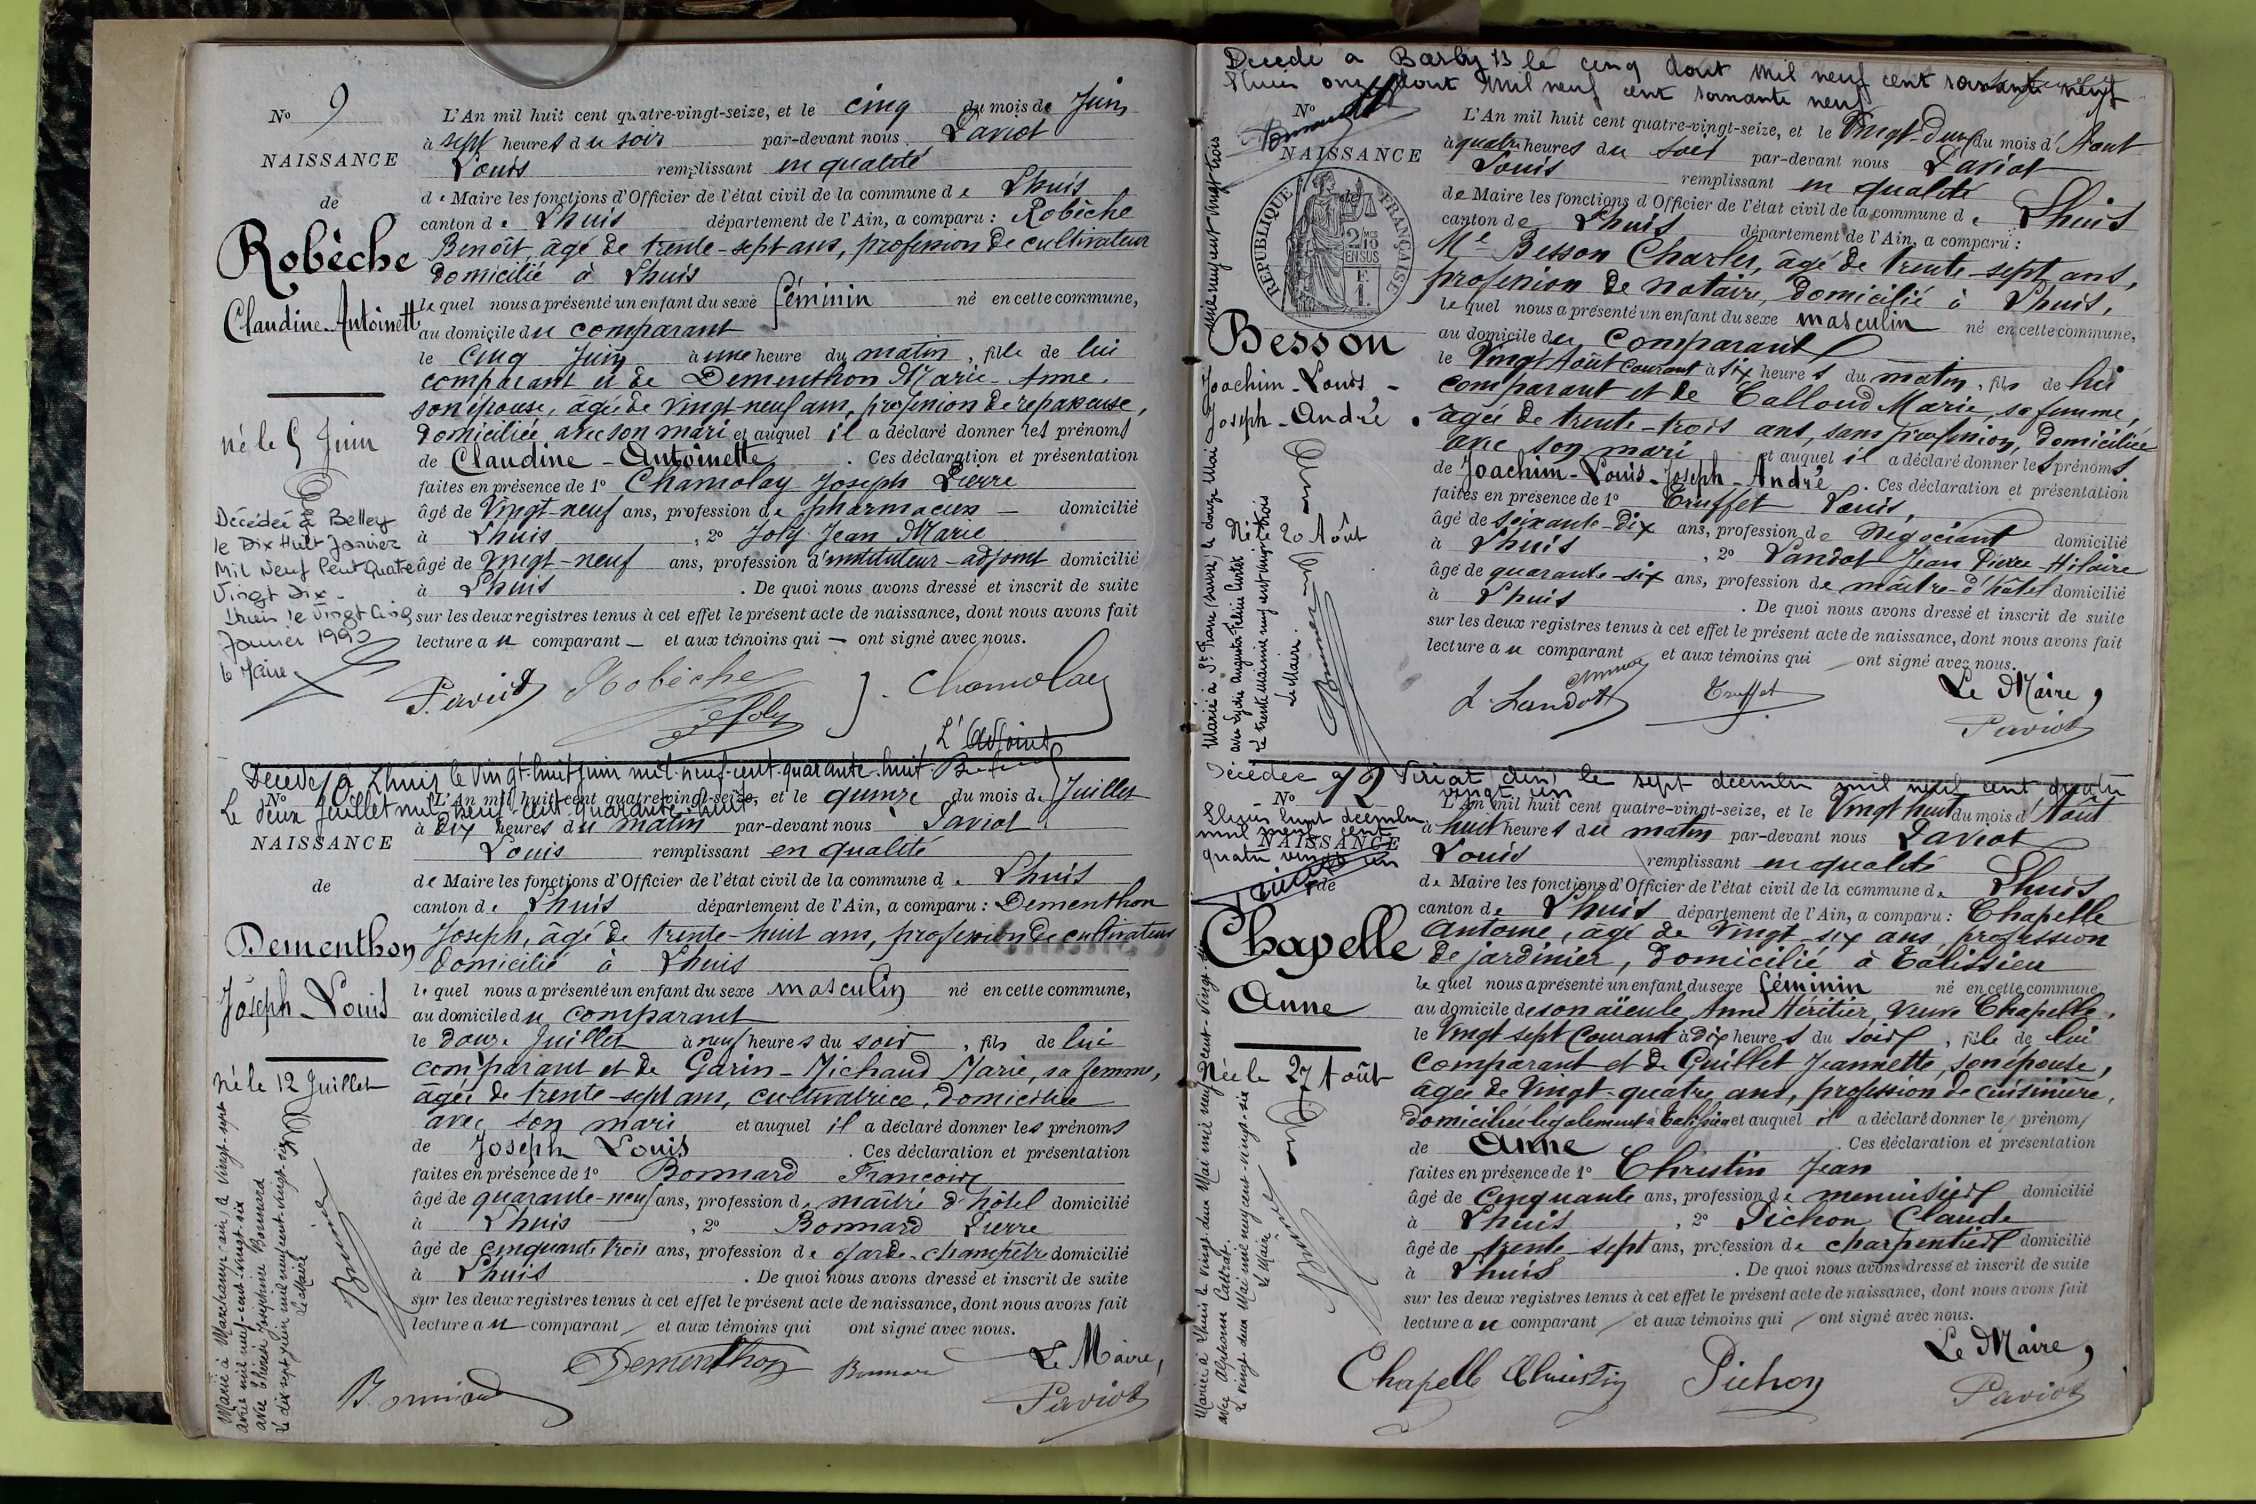 No 9
NAISSANCE
de
Robèche
Claudine-Antoinette
né le 5 Juin
Décédée à Belley
le Dix Huit Janvier
Mil Neuf Cent Quatre
Vingt Dix -
Lhuis le Vingt Cinq
Janvier 1990
le Maire
L'An mil huit cent quatre-vingt-seize, et le cinq du mois de Juin
à sept heures du soir par-devant nous Paviot
Louis remplissant en qualité
de Maire les fonctions d'Officier de l'état civil de la commune de Lhuis
canton de Lhuis département de l'Ain, a comparu : Robèche
Benoît, âgé de trente-sept ans, profession de cultivateur
domicilié à Lhuis
lequel nous a présenté un enfant du sexe féminin né en cette commune,
au domicile du comparant
le cinq Juin à une heure du matin, fille de lui
comparant et de Dementhon Marie-Anne,
son épouse, âgée de vingt-neuf ans, profession de repasseuse,
domiciliée avec son mari et auquel il a déclaré donner les prénoms
de Claudine-Antoinette . Ces déclaration et présentation
faites en présence de 1º Chamolay Joseph Pierre
âgé de vingt-neuf ans, profession de pharmacien — domicilié
à Lhuis , 2º Joly Jean Marie
âgé de vingt-neuf ans, profession d'instituteur-adjoint domicilié
à Lhuis . De quoi nous avons dressé et inscrit de suite
sur les deux registres tenus à cet effet le présent acte de naissance, dont nous avons fait
lecture au comparant — et aux témoins qui — ont signé avec nous.
Paviot Robèche J. Chamolay
Joly
L'Adjoint
Décédé à Lhuis le vingt-huit juin mil-neuf-cent-quarante-huit
Le deux juillet mil-neuf-cent-quarante-huit
No
NAISSANCE
de
Dementhon
Joseph Louis
Né le 12 Juillet
Marié à Marchamp (ain) le vingt-sept
avril mil neuf-cent-vingt-six
avec Thérèse Joséphine Bonnard
Le dix sept juin mil neuf cent vingt-six
Le Maire
L'An mil huit cent quatre-vingt-seize, et le quinze du mois de Juillet
à dix heures du matin par-devant nous Paviot
Louis remplissant en qualité
de Maire les fonctions d'Officier de l'état civil de la commune de Lhuis
canton de Lhuis département de l'Ain, a comparu : Dementhon
Joseph, âgé de trente-huit ans, profession de cultivateur
domicilié à Lhuis
lequel nous a présenté un enfant du sexe masculin né en cette commune,
au domicile du comparant
le douze Juillet à neuf heures du soir , fils de lui
comparant et de Garin-Michaud Marie, sa femme,
âgée de trente-sept ans, cultivatrice, domiciliée
avec son mari et auquel il a déclaré donner les prénoms
de Joseph Louis . Ces déclaration et présentation
faites en présence de 1º Bonnard François
âgé de quarante-neuf ans, profession de maître d'hôtel domicilié
à Lhuis , 2º Bonnard Pierre
âgé de cinquante trois ans, profession de garde-champêtre domicilié
à Lhuis . De quoi nous avons dressé et inscrit de suite
sur les deux registres tenus à cet effet le présent acte de naissance, dont nous avons fait
lecture au comparant et aux témoins qui ont signé avec nous.
Le Maire,
Bonnard Dementhon Bonnard Paviot
Décédé à Barby 73 le cinq Aout mil neuf cent soixante neuf
Lhuis onze Aout mil neuf cent soixante neuf
No
NAISSANCE
de
RÉPUBLIQUE FRANÇAISE
Besson
Joachim-Louis-
Joseph-André
Né 20 Août
Le Maire
L'An mil huit cent quatre-vingt-seize, et le vingt-deux du mois d'Aout
à quatre heures du soir par-devant nous Paviot
Louis remplissant en qualité
de Maire les fonctions d'Officier de l'état civil de la commune de Lhuis
canton de Lhuis département de l'Ain, a comparu :
Me Besson Charles, âgé de trente-sept ans,
profession de notaire, domicilié à Lhuis,
lequel nous a présenté un enfant du sexe masculin né en cette commune,
au domicile du comparant
le vingt Août courant à six heures du matin, fils de lui
comparant et de Calloud Marie, sa femme,
âgée de trente-trois ans, sans profession, domiciliée
avec son mari et auquel il a déclaré donner les prénoms
de Joachim-Louis-Joseph-André . Ces déclaration et présentation
faites en présence de 1º Truffet Louis,
âgé de soixante-dix ans, profession de Négociant domicilié
à Lhuis , 2º Landot Jean Pierre Hilaire
âgé de quarante-six ans, profession de maître-d'hôtel domicilié
à Lhuis . De quoi nous avons dressé et inscrit de suite
sur les deux registres tenus à cet effet le présent acte de naissance, dont nous avons fait
lecture au comparant et aux témoins qui ont signé avec nous.
Le Maire,
J. Landot Truffet Paviot
Décédée à Viriat (Ain) le sept décembre mil neuf cent quatre
vingt un
Lhuis huit décembre
mil neuf cent
quatre vingt un
No 12
NAISSANCE
de
Chapelle
Anne
Née le 27 Août
Mariée à Lhuis le vingt-deux Mai mil neuf cent-vingt-six
avec Alphonse
Le vingt deux Mai mil neuf cent-vingt-six
Le Maire
L'An mil huit cent quatre-vingt-seize, et le vingt huit du mois d'Aout
à huit heures du matin par-devant nous Paviot
Louis remplissant en qualité
de Maire les fonctions d'Officier de l'état civil de la commune de Lhuis
canton de Lhuis département de l'Ain, a comparu : Chapelle
Antoine, âgé de vingt-six ans, profession
de jardinier, domicilié à Talissieu
lequel nous a présenté un enfant du sexe féminin né en cette commune
au domicile de son aïeule Anne Héritier, veuve Chapelle,
le vingt sept courant à dix heures du soir , fille de lui
comparant et de Guillet Jeannette, son épouse,
âgée de vingt-quatre ans, profession de cuisinière,
domiciliée légalement à Talissieu et auquel il a déclaré donner le prénom
de Anne . Ces déclaration et présentation
faites en présence de 1º Christin Jean
âgé de cinquante ans, profession de menuisier domicilié
à Lhuis , 2º Pichon Claude
âgé de trente-sept ans, profession de charpentier domicilié
à Lhuis . De quoi nous avons dressé et inscrit de suite
sur les deux registres tenus à cet effet le présent acte de naissance, dont nous avons fait
lecture au comparant et aux témoins qui ont signé avec nous.
Le Maire,
Chapelle Christin Pichon Paviot